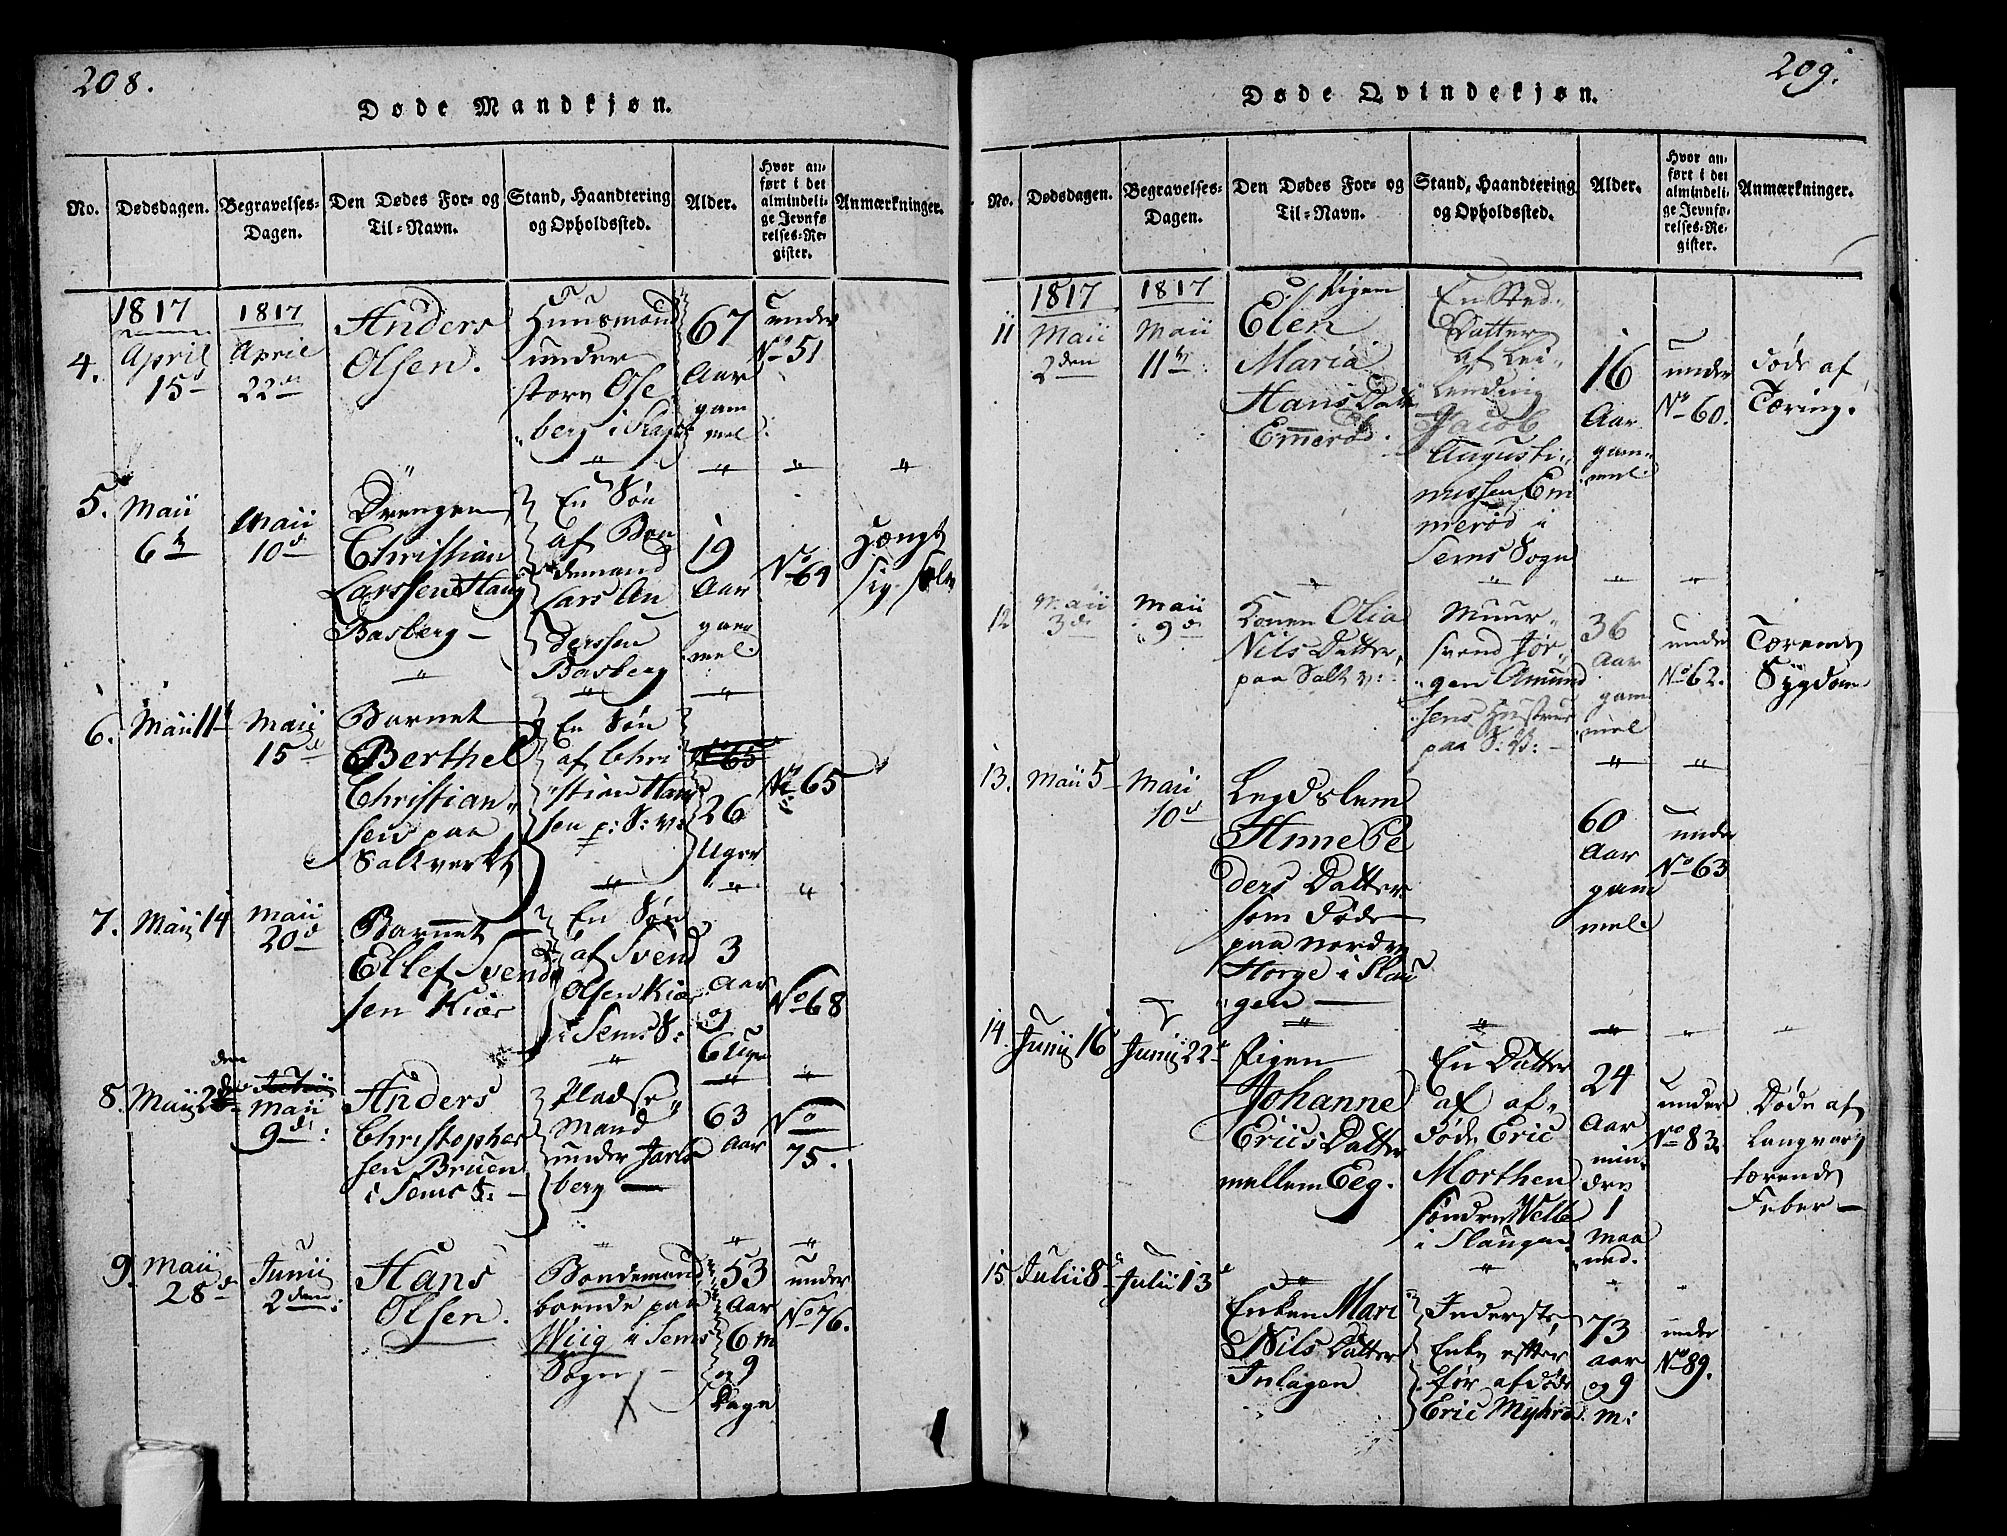 208.
Døde Mandkjøn.
No.
Dødsdagen.
Begravelses-
Dagen.
Den Dødes For- og
Til-Navn.
Stand, Haandtering
og Opholdssted.
Alder.
Hvor an-
ført i det
almindeli-
ge Jevnfø-
relses-Re-
gister.
Anmærkninger.
4.
1817
April
15d
1817
April
22de
Anders
Olsen.
Huusmand
under
store Ose
berg i
67
Aar
gam
mel.
under
No 51
5.
Maii
6te
Maii
10d
Drengen
Christian
Larssen Haug
Basberg
En Søn
af Bon
demand
Lars An
derssen
Basberg
19
Aar
gam
mel.
No 64
Hængt
sig selv
6.
Maii 11te
Maii
15d
Barnet
Berthel
Christian
sen paa
Saltverk
En Søn
af Chri
stian Han
sen p: S: V:
No 65
26
Uger
No 65
7.
Maii 14
Maii
20d
Barnet
Ellef Svend
sen Kiær
En Søn
af Svend
Olsen Kiær
i Sems S:
3
Aar
og
6 Uger
No 68
8.
Maii
Maii
9de:
Anders
Christopher
sen Bruen
i Sems S:
Pladse
Mand
under Jarls
berg
63
Aar
No
75.
9.
Maii
28d
Junii
2den:
Hans
Olsen.
Bondemand
boende paa
Wiig i Sems
Sogn
53
Aar
6 m
og 9
Dage
under
No 76.
209.
Døde Qvindekjøn.
No.
Dødsdagen.
Begravelses-
Dagen.
Den Dødes For- og
Til-Navn.
Stand, Haandtering
og Opholdssted.
Alder.
Hvor an-
ført i det
almindeli-
ge Jevnfø-
relses-Re-
gister.
Anmærkninger.
11
1817
Maii
2den
1817
Maii
11te:
Pigen
Elen
Maria
Hans Datter
Emmerød.
En Sted-
Datter
af Lei-
lending
Jacob
Augusti-
nussen Em
merød i
Sems Sogn
16
Aar
gam-
mel
under
No 60.
Døde af
Tæring.
12
Maii
3de
Maii
9de
Konen Olia
Nils Datter,
paa Salt v:
Muur-
svend Jør-
gen Amund
sens Hustrue
paa S: V:
36
Aar
gam
mel
under
No 62.
Tærende
Sygdom
13.
Maii 5
Maii
10d
Legdslem
Anne Pe
ders Datter
som døde
paa nordre
Horge i Slau
gen
60
Aar
gam
mel.
under
No 63
14.
Junii 16
Junii 22d
Pigen
Johanne
Erics Datter
mellem Eeg.
En Datter
af af-
døde Eric
Morthen
søndre Welle
i Slaugen
24
Aar
min-
dre
1
Maa
ned.
under
No 83.
Døde af
Langvarig
tærende
Feber
15.
Julii 8d
Julii 13d
Enken Mari
Nils Datter
Inlagen
Inderste,
Enke efter
før afdøde
Eric Myhre
73
aar
og 9
m:
under
No 89.